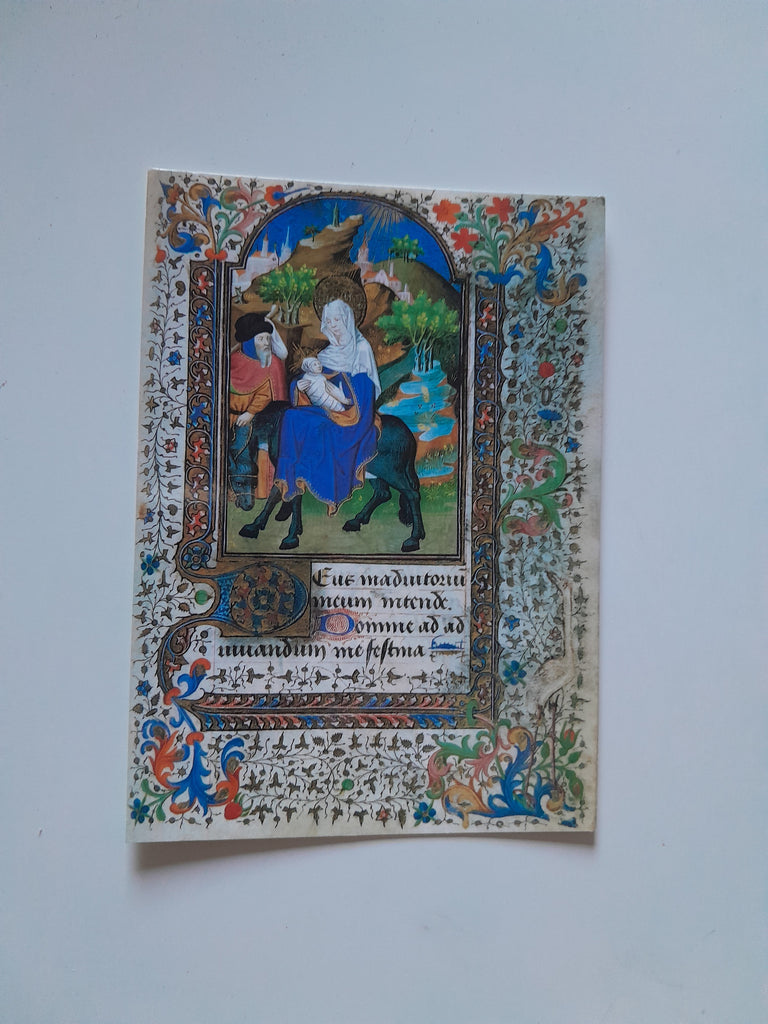 Deus madiutoriū
meum intende.
Domine ad ad
iuuandum me festina